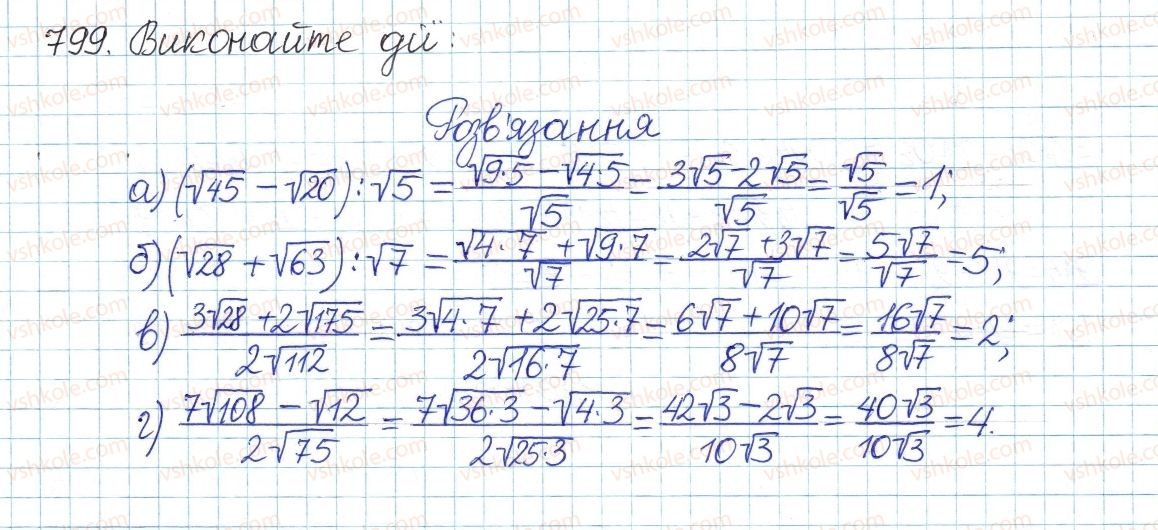 799. Виконайте дії:
Розв'язання
а) (√45 − √20) : √5 = (√(9·5) − √(4·5))/√5 = (3√5 − 2√5)/√5 = √5/√5 = 1;
б) (√28 + √63) : √7 = (√(4·7) + √(9·7))/√7 = (2√7 + 3√7)/√7 = 5√7/√7 = 5;
в) (3√28 + 2√175)/(2√112) = (3√(4·7) + 2√(25·7))/(2√(16·7)) = (6√7 + 10√7)/(8√7) = 16√7/(8√7) = 2;
г) (7√108 − √12)/(2√75) = (7√(36·3) − √(4·3))/(2√(25·3)) = (42√3 − 2√3)/(10√3) = 40√3/(10√3) = 4.